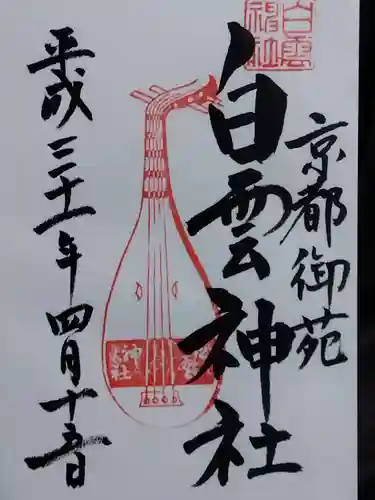 京都御苑
白雲
神社
白雲神社
平成三十一年四月十五日